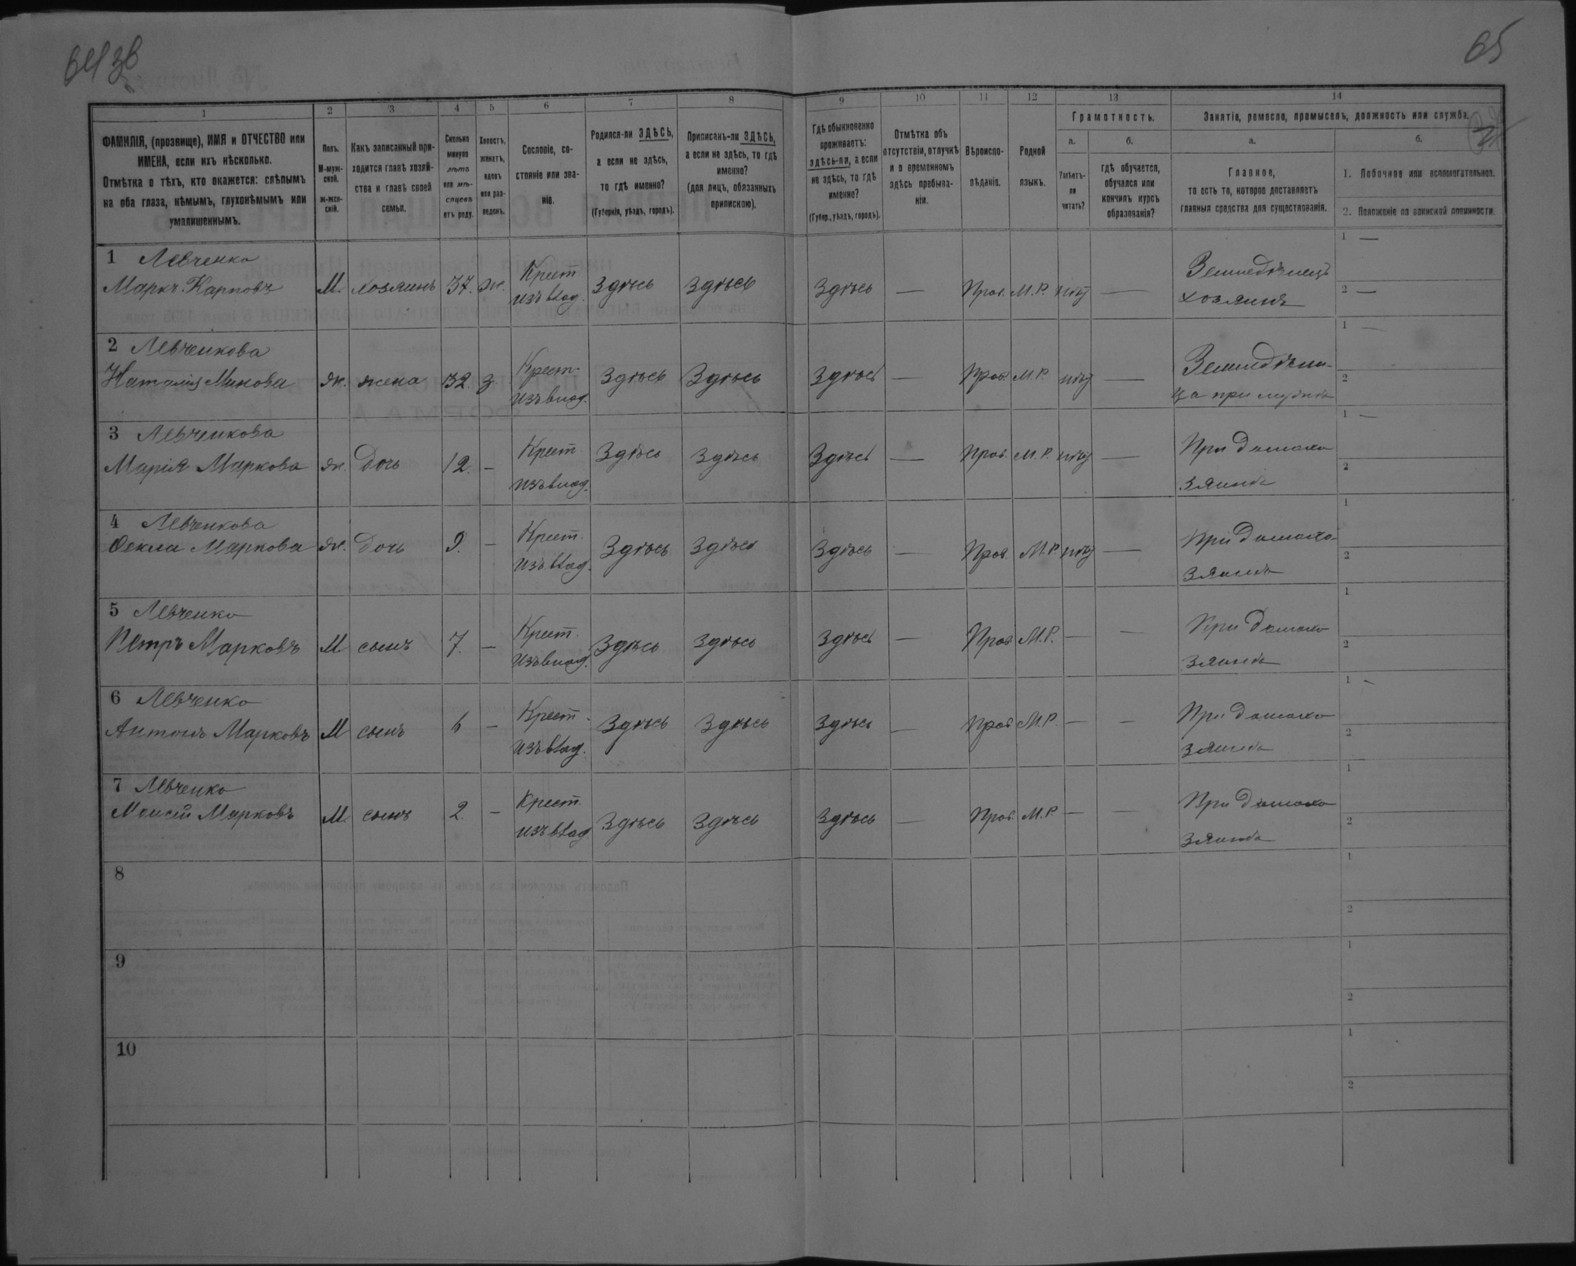 64 зв
65
1
2
3
4
5
6
7
8
9
10
11
12
13
14
ФАМИЛІЯ, (прозвище), ИМЯ и ОТЧЕСТВО или ИМЕНА, если ихъ нѣсколько.
Отмѣтка о тѣхъ, кто окажется: слѣпымъ на оба глаза, нѣмымъ, глухонѣмымъ или умалишеннымъ.
Полъ.
М-мужской.
ж-женскій.
Какъ записанный приходится главѣ хозяйства и главѣ своей семьи.
Сколько минуло лѣтъ или мѣсяцевъ отъ роду.
Холостъ, женатъ, вдовъ или разведенъ.
Сословіе, состояніе или званіе.
Родился-ли ЗДѢСЬ, а если не здѣсь, то гдѣ именно?
(Губернія, уѣздъ, городъ).
Приписанъ-ли ЗДѢСЬ, а если не здѣсь, то гдѣ именно?
(для лицъ, обязанныхъ припискою).
Гдѣ обыкновенно проживаетъ: здѣсь-ли, а если не здѣсь, то гдѣ именно?
(Губер., уѣздъ, городъ).
Отмѣтка объ отсутствіи, отлучкѣ и о временномъ здѣсь пребываніи.
Вѣроисповѣданіе.
Родной языкъ.
Грамотность.
а.
Умѣетъ-ли читать?
б.
гдѣ обучается, обучался или кончилъ курсъ образованія?
Занятіе, ремесло, промыселъ, должность или служба.
а.
Главное,
то есть то, которое доставляетъ главныя средства для существованія.
б.
1. Побочное или вспомогательное.
2. Положеніе по воинской повинности.
1 Левченко
Маркъ Карповъ М. хозяинъ 37. ж. Крест. изъ влад. Здѣсь Здѣсь Здѣсь — Прав. М.Р. нѣтъ — Земледѣлецъ хозяинъ 1 — 2 —
2 Левченкова
Наталія Минова ж. жена 32 з Крест. изъ влад. Здѣсь Здѣсь Здѣсь — Прав М.Р. нѣтъ — Земледѣлица при мужѣ 1 — 2
3 Левченкова
Марія Маркова ж. дочь 12. — Крест изъ влад. Здѣсь Здѣсь Здѣсь — Прав М.Р. нѣтъ — При дамохозяинѣ 1 — 2
4 Левченкова
Ѳекла Маркова ж. дочь 9. — Крест. изъ влад. Здѣсь Здѣсь Здѣсь — Прав М.Р. нѣтъ — При дамохозяинѣ 1 2
5 Левченко
Петръ Марковъ М сынъ 7. — Крест. изъ влад. Здѣсь Здѣсь Здѣсь — Прав М.Р. — — При дамохозяинѣ 1 2
6 Левченко
Антонъ Марковъ М сынъ 6 — Крест. изъ влад. Здѣсь Здѣсь Здѣсь — Прав М.Р. — — При дамохозяинѣ 1 2
7 Левченко
Моисей Марковъ М сынъ 2 — Крест. изъ влад Здѣсь Здѣсь Здѣсь — Прав М.Р. — — При дамохозяинѣ 1 2
8 1 2
9 1 2
10 1 2